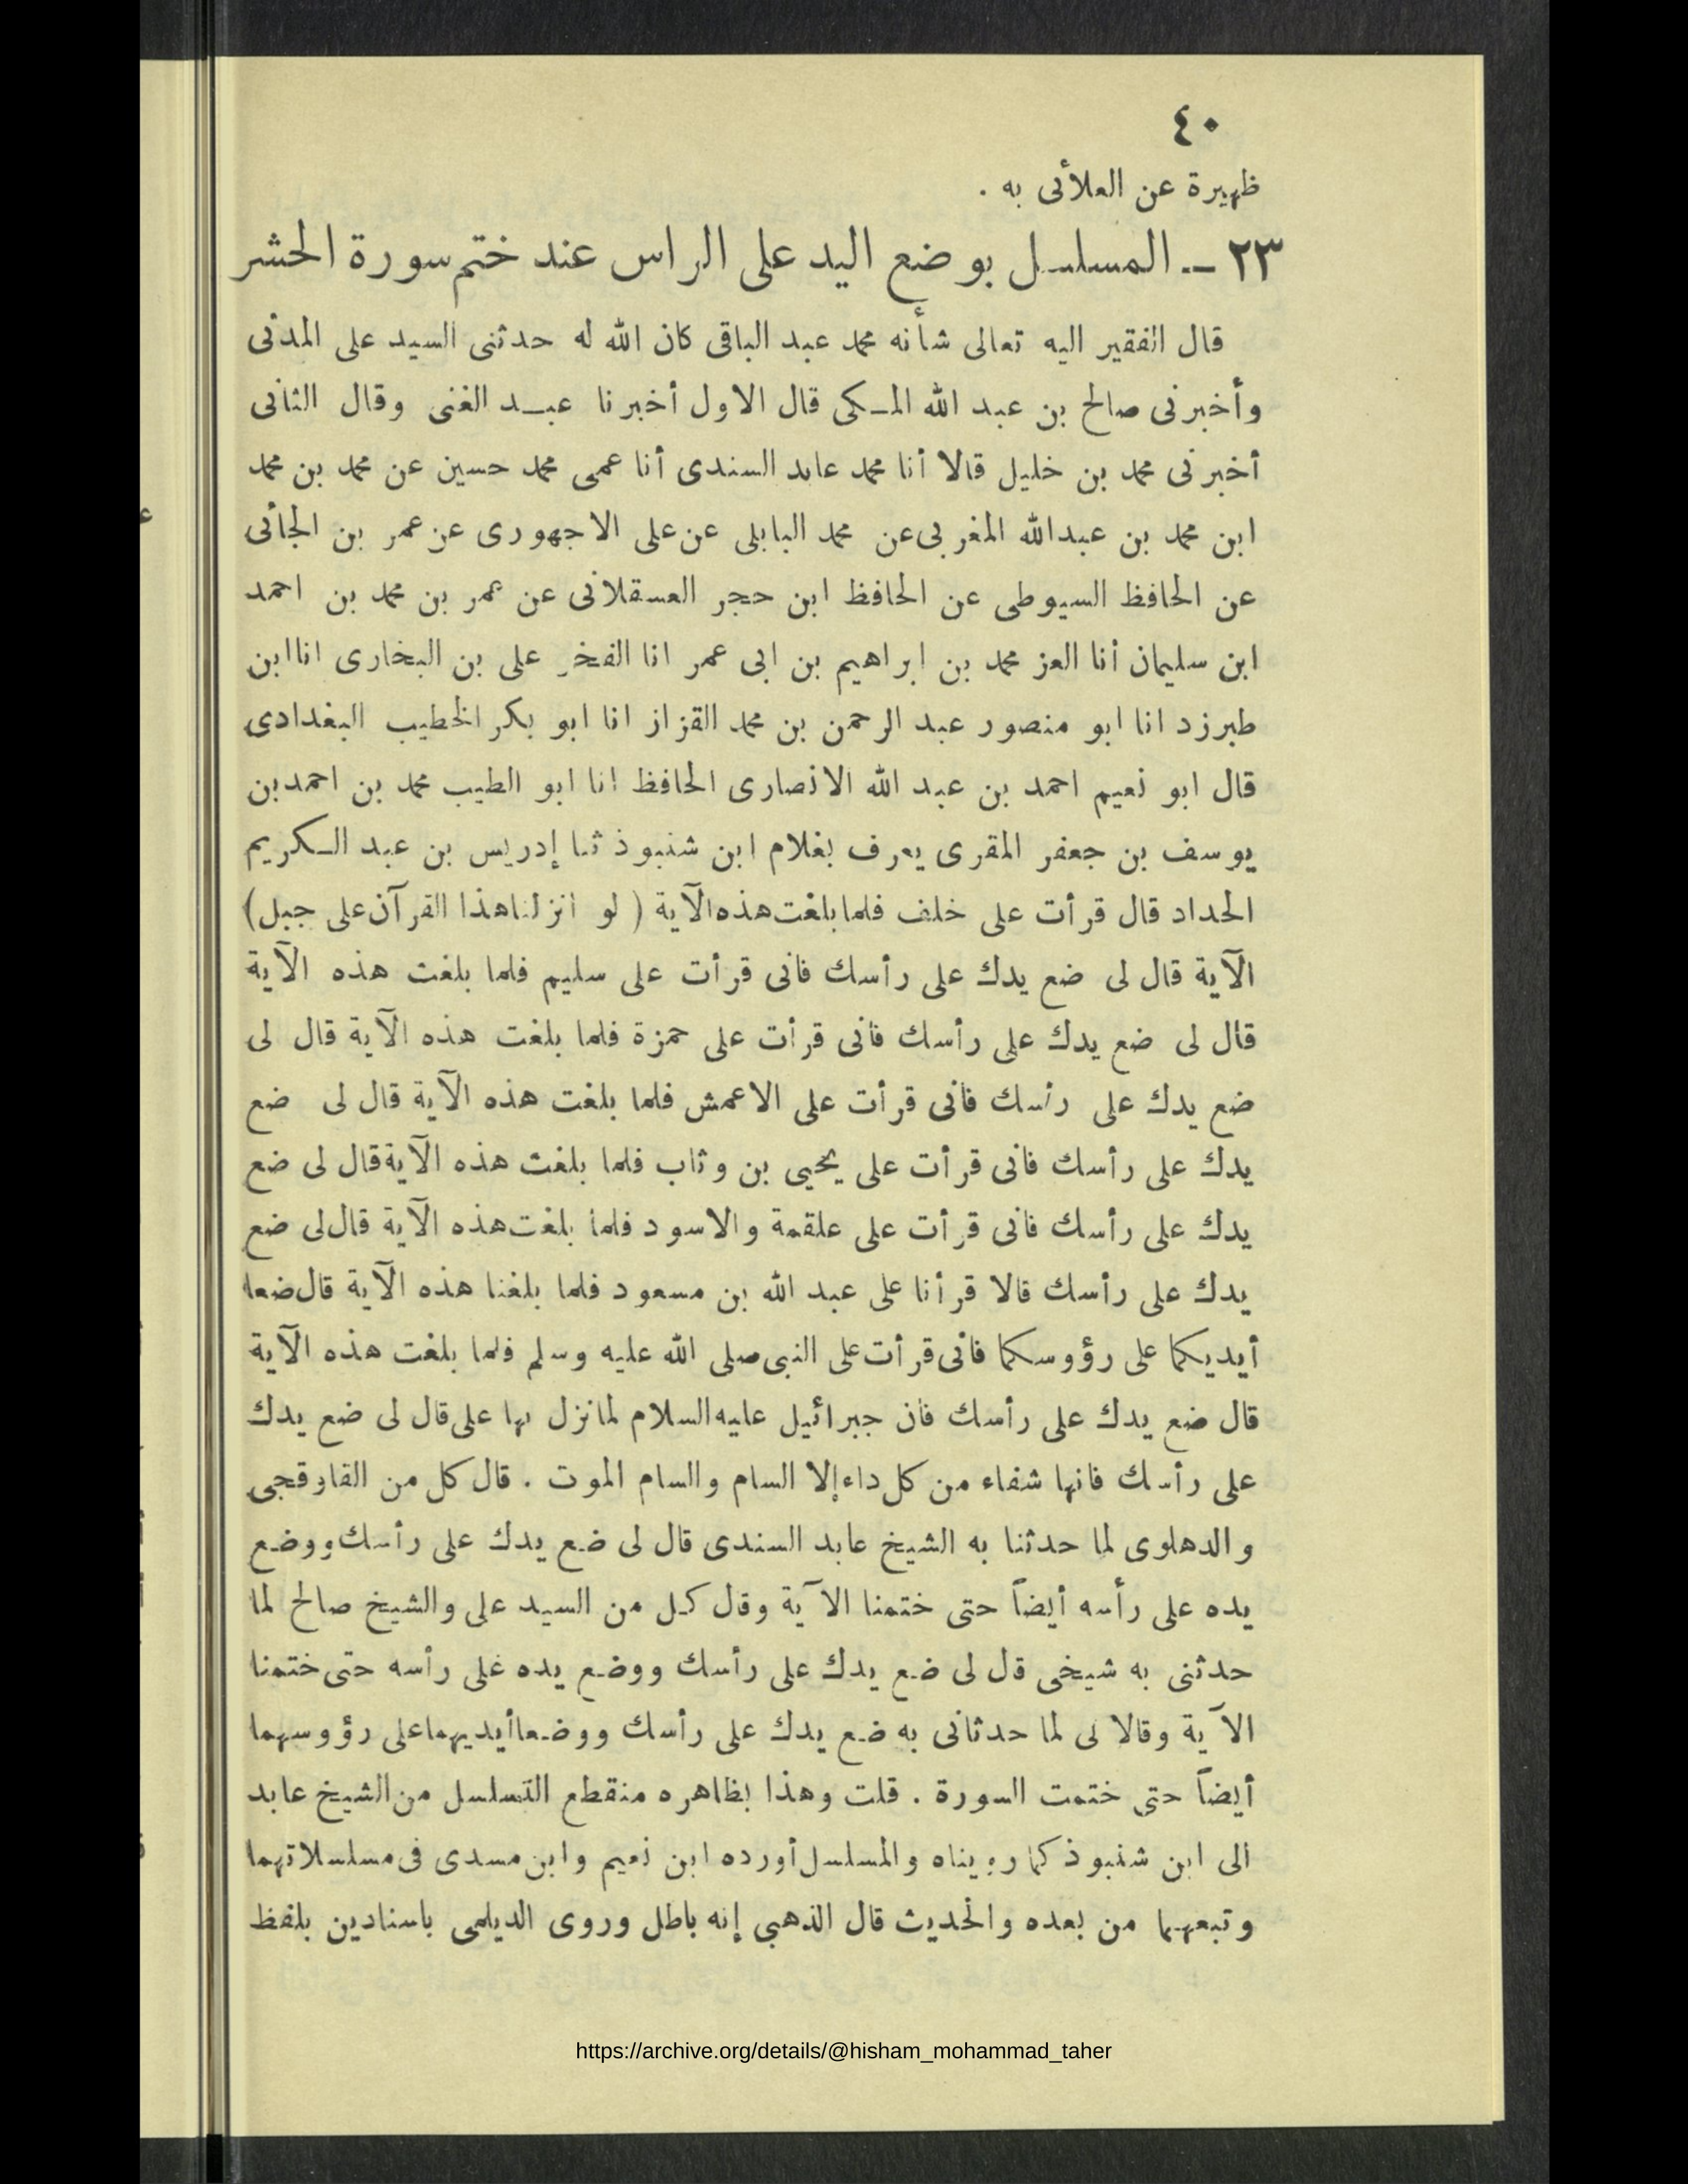 ٤٠
ظهيرة عن العلأئى به .
٢٣ ــ المسلسل بوضع اليد على الراس عند ختم سورة الحشر
قال الفقير اليه تعالى شأنه محمد عبد الباقى كان الله له حدثنى السيد على المدنى
وأخبرنى صالح بن عبد الله المـكى قال الاول أخبرنا عبــد الغنى وقال الثانى
أخبرنى محمد بن خليل قالا أنا محمد عابد السندى أنا عمى محمد حسين عن محمد بن محمد
ابن محمد بن عبدالله المغربى عن محمد البابلى عن على الاجهورى عن عمر بن الجائى
عن الحافظ السيوطى عن الحافظ ابن حجر العسقلانى عن عمر بن محمد بن احمد
ابن سليمان أنا العز محمد بن ابراهيم بن ابى عمر انا الفخر على بن البخارى انا ابن
طبرزد انا ابو منصور عبد الرحمن بن محمد القزاز انا ابو بكر الخطيب البغدادى
قال ابو نعيم احمد بن عبد الله الانصارى الحافظ انا ابو الطيب محمد بن احمد بن
يوسف بن جعفر المقرى يعرف بغلام ابن شنبوذ ثنا إدريس بن عبد الـكريم
الحداد قال قرأت على خلف فلما بلغت هذه الآية ( لو انزلنا هذا القرآن على جبل)
الآية قال لى ضع يدك على رأسك فانى قرأت على سليم فلما بلغت هذه الآية
قال لى ضع يدك على رأسك فانى قرأت على حمزة فلما بلغت هذه الآية قال لى
ضع يدك على رأسك فانى قرأت على الاعمش فلما بلغت هذه الآية قال لى ضع
يدك على رأسك فانى قرأت على يحيى بن وثاب فلما بلغت هذه الآية قال لى ضع
يدك على رأسك فانى قرأت على علقمة والاسود فلما بلغت هذه الآية قال لى ضع
يدك على رأسك قالا قرأنا على عبد الله بن مسعود فلما بلغنا هذه الآية قال ضعا
أيديكما على رؤوسكما فانى قرأت على النبى صلى الله عليه وسلم فلما بلغت هذه الآية
قال ضع يدك على رأسك فان جبرائيل عليه السلام لما نزل بها على قال لى ضع يدك
على رأسك فانها شفاء من كل داء إلا السام والسام الموت . قال كل من القاوقجى
والدهلوى لما حدثنا به الشيخ عابد السندى قال لى ضع يدك على رأسك ووضع
يده على رأسه أيضاً حتى ختمنا الآية وقال كل من السيد على والشيخ صالح لما
حدثنى به شيخى قل لى ضع يدك على رأسك ووضع يده على رأسه حتى ختمنا
الآية وقالا لى لما حدثانى به ضع يدك على رأسك ووضعا أيديهما على رؤوسهما
أيضاً حتى ختمت السورة . قلت وهذا بظاهره منقطع التسلسل من الشيخ عابد
الى ابن شنبوذ كما رويناه والمسلسل أورده ابن نعيم وابن مسدى فى مسلسلاتهما
وتبعهما من بعده والحديث قال الذهبي إنه باطل وروى الديلمى باسنادين بلفظ
https://archive.org/details/@hisham_mohammad_taher